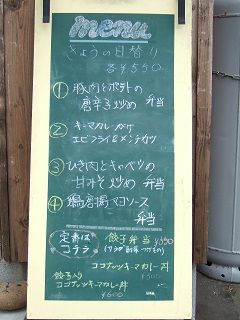 menu
きょうの日替り
各￥550
① 豚肉とポテトの
唐辛子炒め 弁当
② キーマカレーがけ
エビフライ&メンチカツ
③ ひき肉とキャベツの
甘みそ炒め 弁当
④ 鶏唐揚マヨソース
弁当
定番は
コチラ
餃子弁当 ￥350
ココナッツキーマカレー丼
￥500
餃子入り
ココナッツキーマカレー丼
￥600